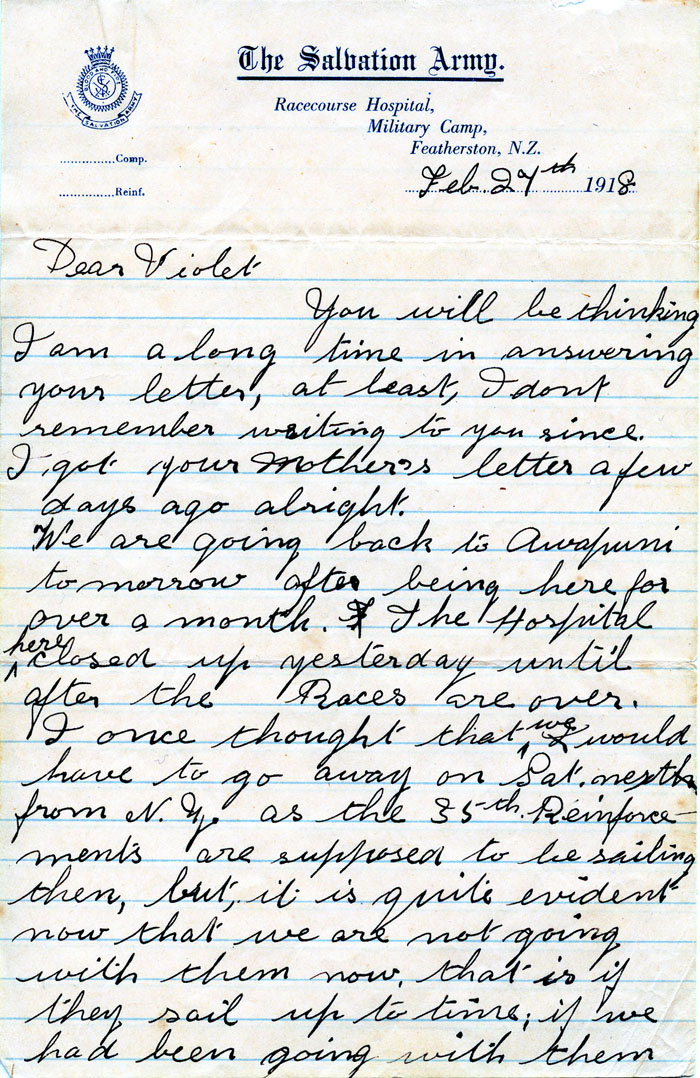 The Salvation Army.
Racecourse Hospital,
Military Camp,
Featherston, N.Z.
BLOOD AND FIRE
THE SALVATION ARMY
..............Comp.
..............Reinf.
Feb. 27th 1918
Dear Violet
You will be thinking
I am a long time in answering
your letter, at least, I dont
remember writing to you since.
I got your Mothers letter a few
days ago alright.
We are going back to Awapuni
tomorrow after being here for
over a month. The Hospital
here closed up yesterday until
after the Races are over.
I once thought that we would
have to go away on Sat. next
from N.Z. as the 35th Reinforce-
ments are supposed to be sailing
then, but, it is quite evident
now that we are not going
with them now, that is if
they sail up to time; if we
had been going with them